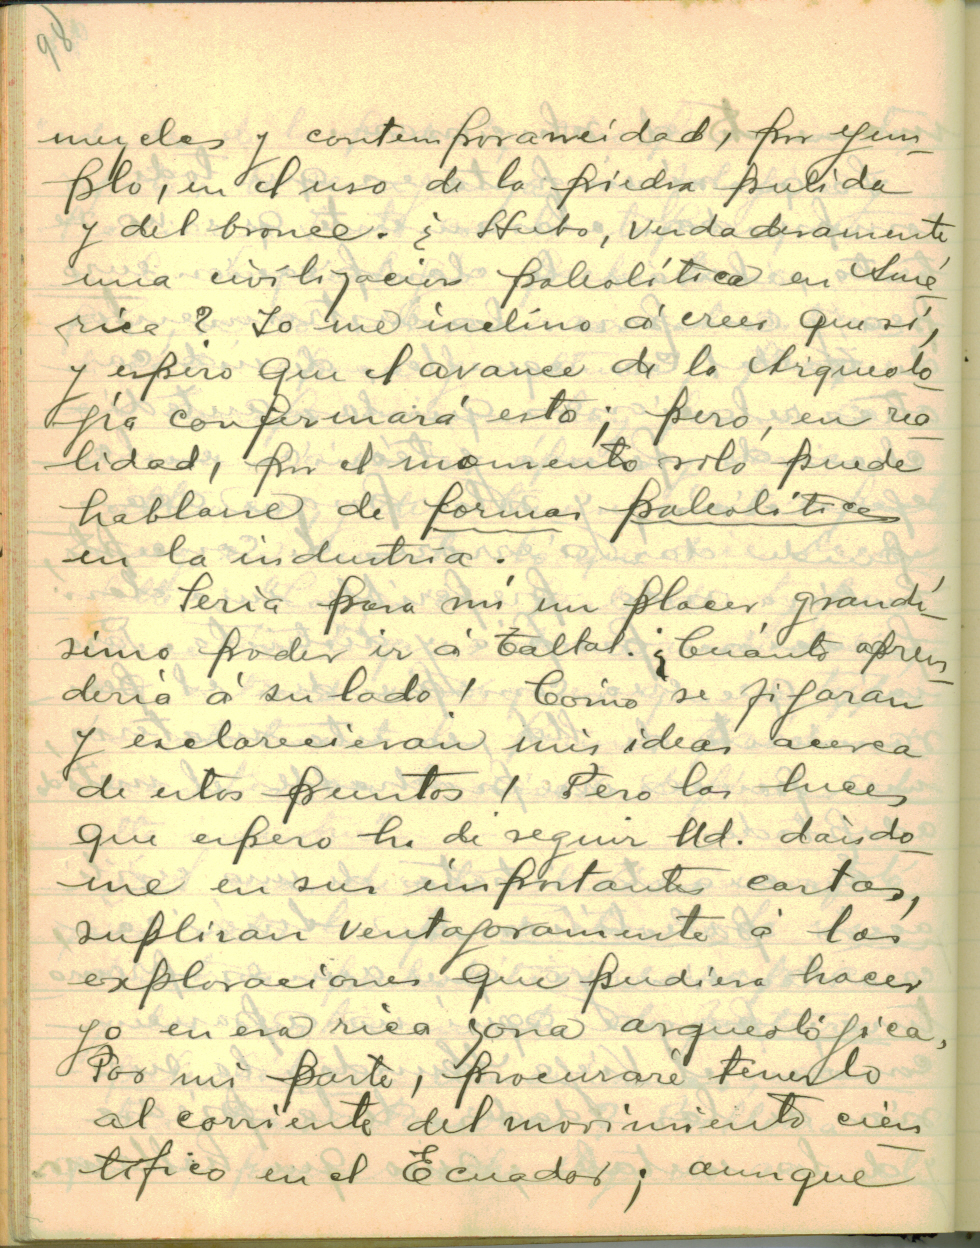 98
mezclas y contemporaneidad, por ejem-
plo, en el uso de la piedra pulida
y del bronce. ¿Hubo, verdaderamente
una civilizacion paleolítica en Amé-
rica? Yo me inclino á creer que sí,
y espero que el avance de la Arqueolo-
gía confirmará esto; pero, en rea-
lidad, por el momento sólo puede
hablarse de formas paleolíticas
en la industria.
Sería para mí un placer grandí-
simo poder ir á Taltal. ¡Cuánto apren-
dería á su lado! Cómo se fijaran
y esclarecieran mis ideas acerca
de estos puntos! Pero las luces
que espero ha de seguir Ud. dándo-
me en sus importantes cartas,
supliran ventajosamente á las
exploraciones que pudiera hacer
yo en esa rica zona arqueológica.
Por mi parte, procuraré tenerlo
al corriente del movimiento cien-
tífico en el Ecuador; aunque